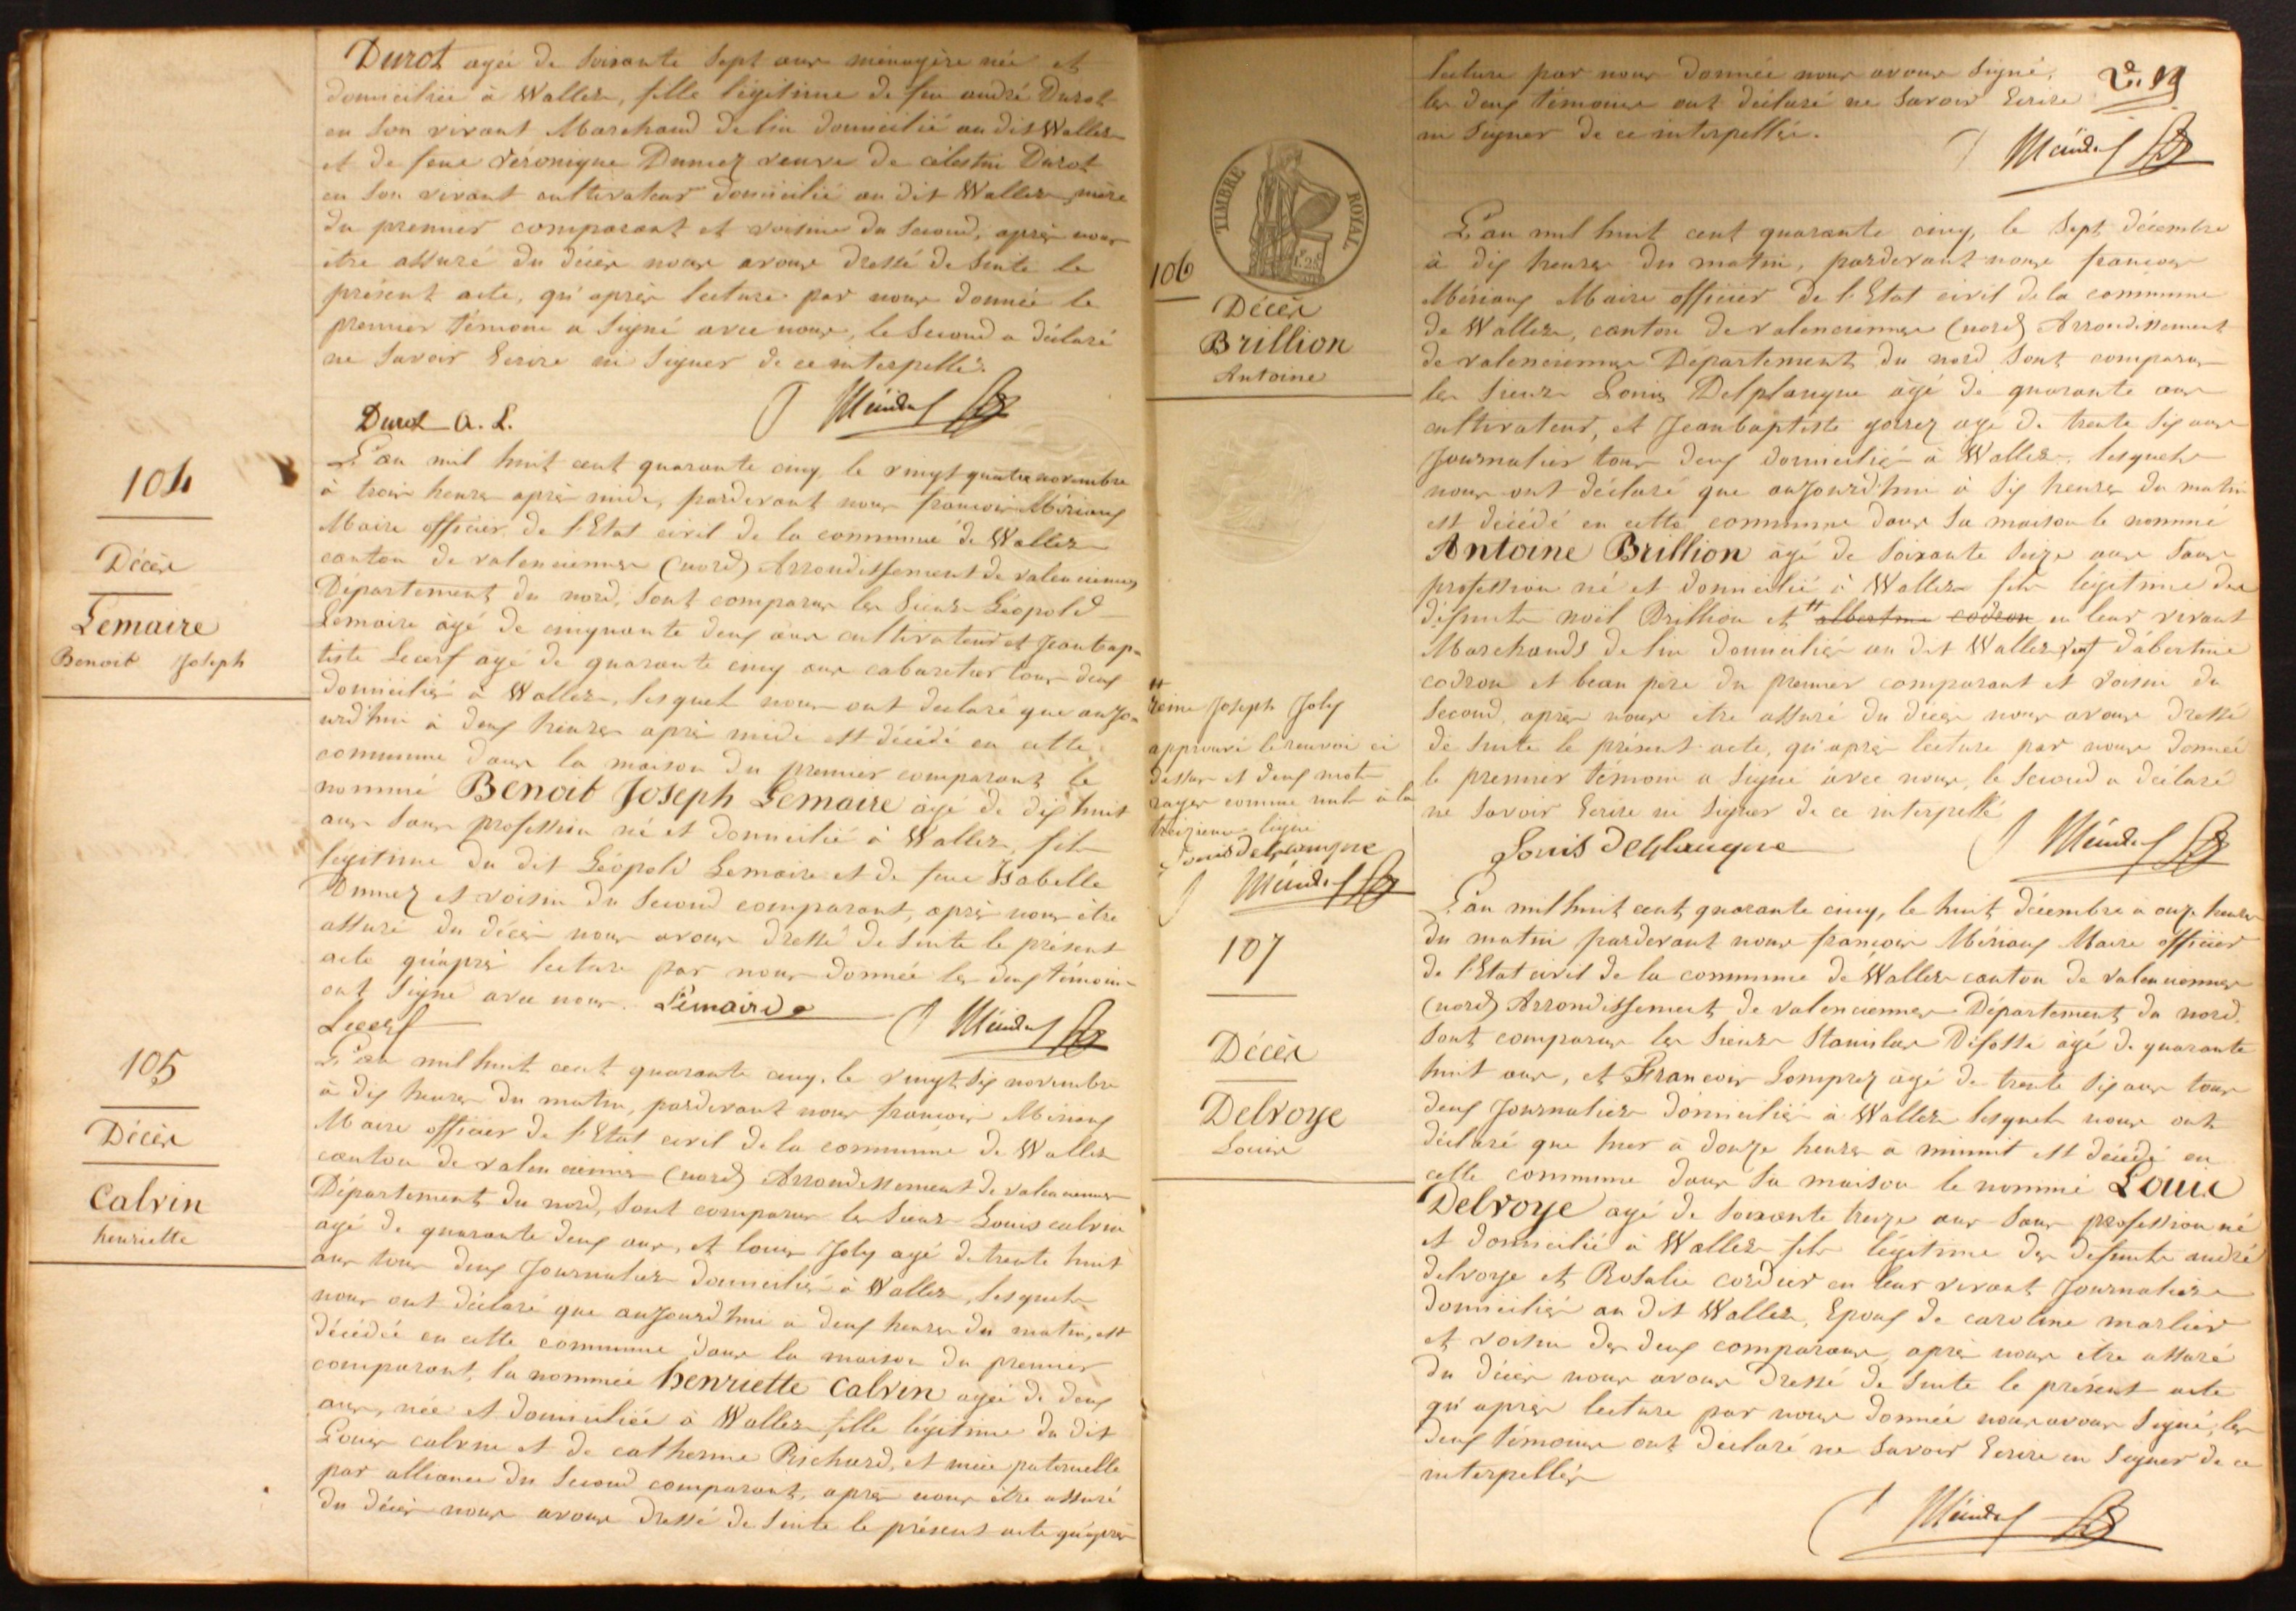 Durot agée de soixante sept ans ménagère née et
domiciliée à Wallers, fille légitime de feu andré Durot
en son vivant Marchand de lin domicilié au dit Wallers
et de feue Véronique Dumez veuve de célestin Durot
en son vivant cultivateur domicilié au dit Wallers, mère
du premier comparant et voisine du second, après nous
être assuré du décès nous avons dressé de suite le
présent acte, qu'après lecture par nous donnée le
premier témoin a signé avec nous, le second a déclaré
ne savoir Ecrire ni signer de ce interpellé.
Durot A. L.
104
Décès
Lemaire
Benoit Joseph
L'an mil huit cent quarante cinq, le vingt quatre novembre
à trois heures après midi, pardevant nous francois Mériaux
Maire officier de l'Etat civil de la commune de Wallers
canton de valenciennes (nord) Arrondissement de valenciennes
Département du nord, sont comparus les sieurs Léopold
Lemaire âgé de cinquante deux ans cultivateur et Jeanbap-
tiste Lecerf agé de quarante cinq ans cabaretier tous deux
domiciliés à Wallers, lesquels nous ont declaré que aujo-
urd'hui à deux heures après midi est décédé en cette
commune dans la maison du premier comparant le
nommé Benoit Joseph Lemaire âgé de dix huit
ans sans profession né et domicilié à Wallers, fils
légitime du dit Léopold Lemaire et de feue Isabelle
Dumez et voisin du second comparant, après nous être
assuré du décès nous avons dressé de suite le présent
acte qu'après lecture par nous donnée les deux témoins
ont signé avec nous. Lemaire
Lecerf
105
Décès
Calvin
henriette
L'an mil huit cent quarante cinq, le vingt six novembre
à dix heures du matin, pardevant nous francois Mériaux
Maire officier de l'Etat civil de la commune de Wallers
canton de valenciennes (nord) Arrondissement de valenciennes
Département du nord, sont comparus les sieurs Louis calvin
agé de quarante deux ans, et louis Joly agé de trente huit
ans tous deux Journaliers domiciliés à Wallers, lesquels
nous ont déclaré que aujourd'hui à deux heures du matin, est
décédée en cette commune dans la maison du premier
comparant, la nommée henriette Calvin agée de deux
ans, née et domiciliée à Wallers fille légitime du dit
Louis calvin et de catherine Richard, et niece paternelle
par alliance du second comparant, après nous être assuré
du décès nous avons dressé de suite le présent acte qu'après
lecture par nous donnée nous avons signé,
les deux témoins ont déclaré ne savoir Ecrire
ni signer de ce interpellés.
TIMBRE ROYAL
106
Décès
Brillion
Antoine
L'an mil huit cent quarante cinq, le sept décembre
à dix heures du matin, pardevant nous francois
Mériaux Maire officier de l'Etat civil de la commune
de Wallers, canton de valenciennes (nord) Arrondissement
de valenciennes Département du nord sont comparus
les sieurs Louis Delplanque âgé de quarante ans
cultivateur, et Jeanbaptiste gorrez agé de trente six ans
Journalier tous deux domiciliés à Wallers, lesquels
nous ont déclaré que aujourd'hui à six heures du matin
est décédé en cette commune dans sa maison le nommé
Antoine Brillion âgé de soixante seize ans sans
profession né et domicilié à Wallers fils légitime des
défunts noël Brillion et albertine codron en leur vivant
Marchands de lin domiciliés au dit Wallers veuf d'albertine
codron et beau pere du premier comparant et voisin du
second, après nous être assuré du décès nous avons dressé
de suite le présent acte, qu'après lecture par nous donnée
le premier témoin a signé avec nous, le second a déclaré
ne savoir Ecrire ni signer de ce interpellé
Louis Delplanque
reine Joseph Joly
approuvé le renvoi ci
dessus et deux mots
rayés comme nuls à la
treizieme ligne
Louis Delplanque
107
Décès
Delvoye
Louis
L'an mil huit cent quarante cinq, le huit décembre à onze heures
du matin pardevant nous francois Mériaux Maire officier
de l'Etat civil de la commune de Wallers canton de valenciennes
(nord) Arrondissement de valenciennes Département du nord.
sont comparus les sieurs Stanislas Difosse agé de quarante
huit ans, et Francois Lomprez âgé de trente six ans tous
deux Journaliers domiciliés à Wallers lesquels nous ont
déclaré que hier à douze heures à minuit est décédé en
cette commune dans sa maison le nommé Louis
Delvoye agé de soixante treize ans sans profession né
et domicilié à Wallers fils légitime des defunts andré
delvoye et Rosalie cordier en leur vivant Journaliers
domiciliés au dit Wallers, Epoux de caroline marlier
et voisin des deux comparans, après nous être assuré
du décès nous avons dressé de suite le présent acte
qu'après lecture par nous donnée nous avons signé, les
deux témoins ont déclaré ne savoir Ecrire ni signer de ce
interpellés